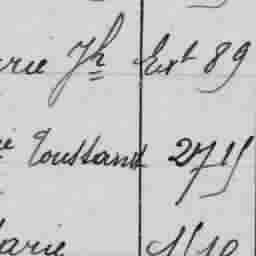 rie Jh Ext 89
é Toussaint 2715
arie